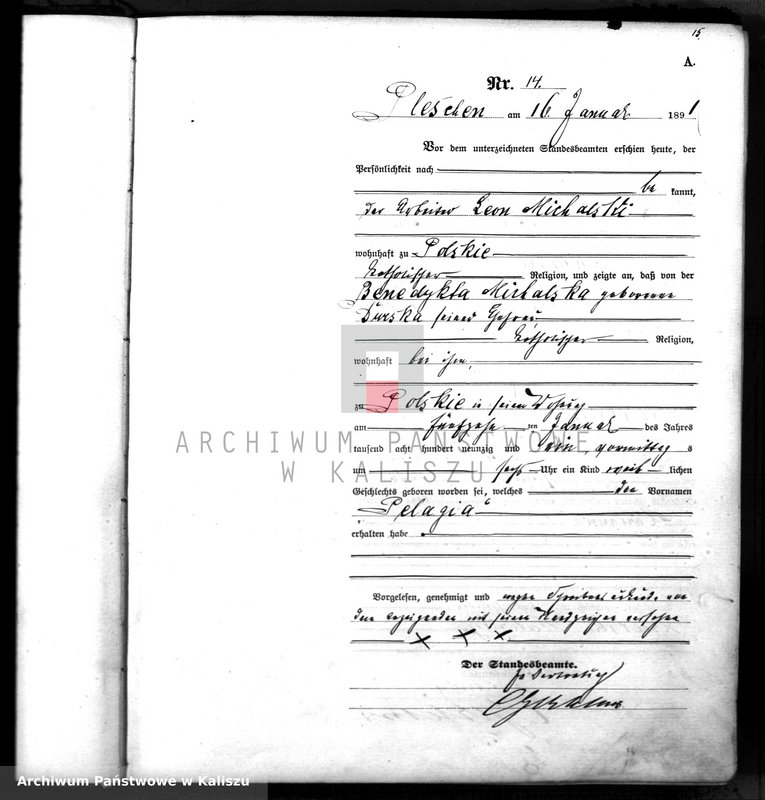 15
A.
Nr. 14.
Pleschen am 16. Januar 1891
Vor dem unterzeichneten Standesbeamten erschien heute, der
Persönlichkeit nach
be kannt,
der Arbeiter Leon Michalski
wohnhaft zu Polskie
katholischer Religion, und zeigte an, daß von der
Benedykta Michalska geborenen
Durska seiner Ehefrau
katholischer Religion,
wohnhaft bei ihm,
zu Polskie in seiner Wohnung
am fünfzehn ten Januar des Jahres
tausend acht hundert neunzig und ein, vormittags
um sechs Uhr ein Kind weib lichen
Geschlechts geboren worden sei, welches den Vornamen
Pelagia
erhalten habe
Vorgelesen, genehmigt und wegen Schreibens von
dem Anzeigenden mit seinem Handzeichen versehen
x x x
Der Standesbeamte.
In Vertretung
ARCHIWUM PAŃSTWOWE
W KALISZU
Archiwum Państwowe w Kaliszu